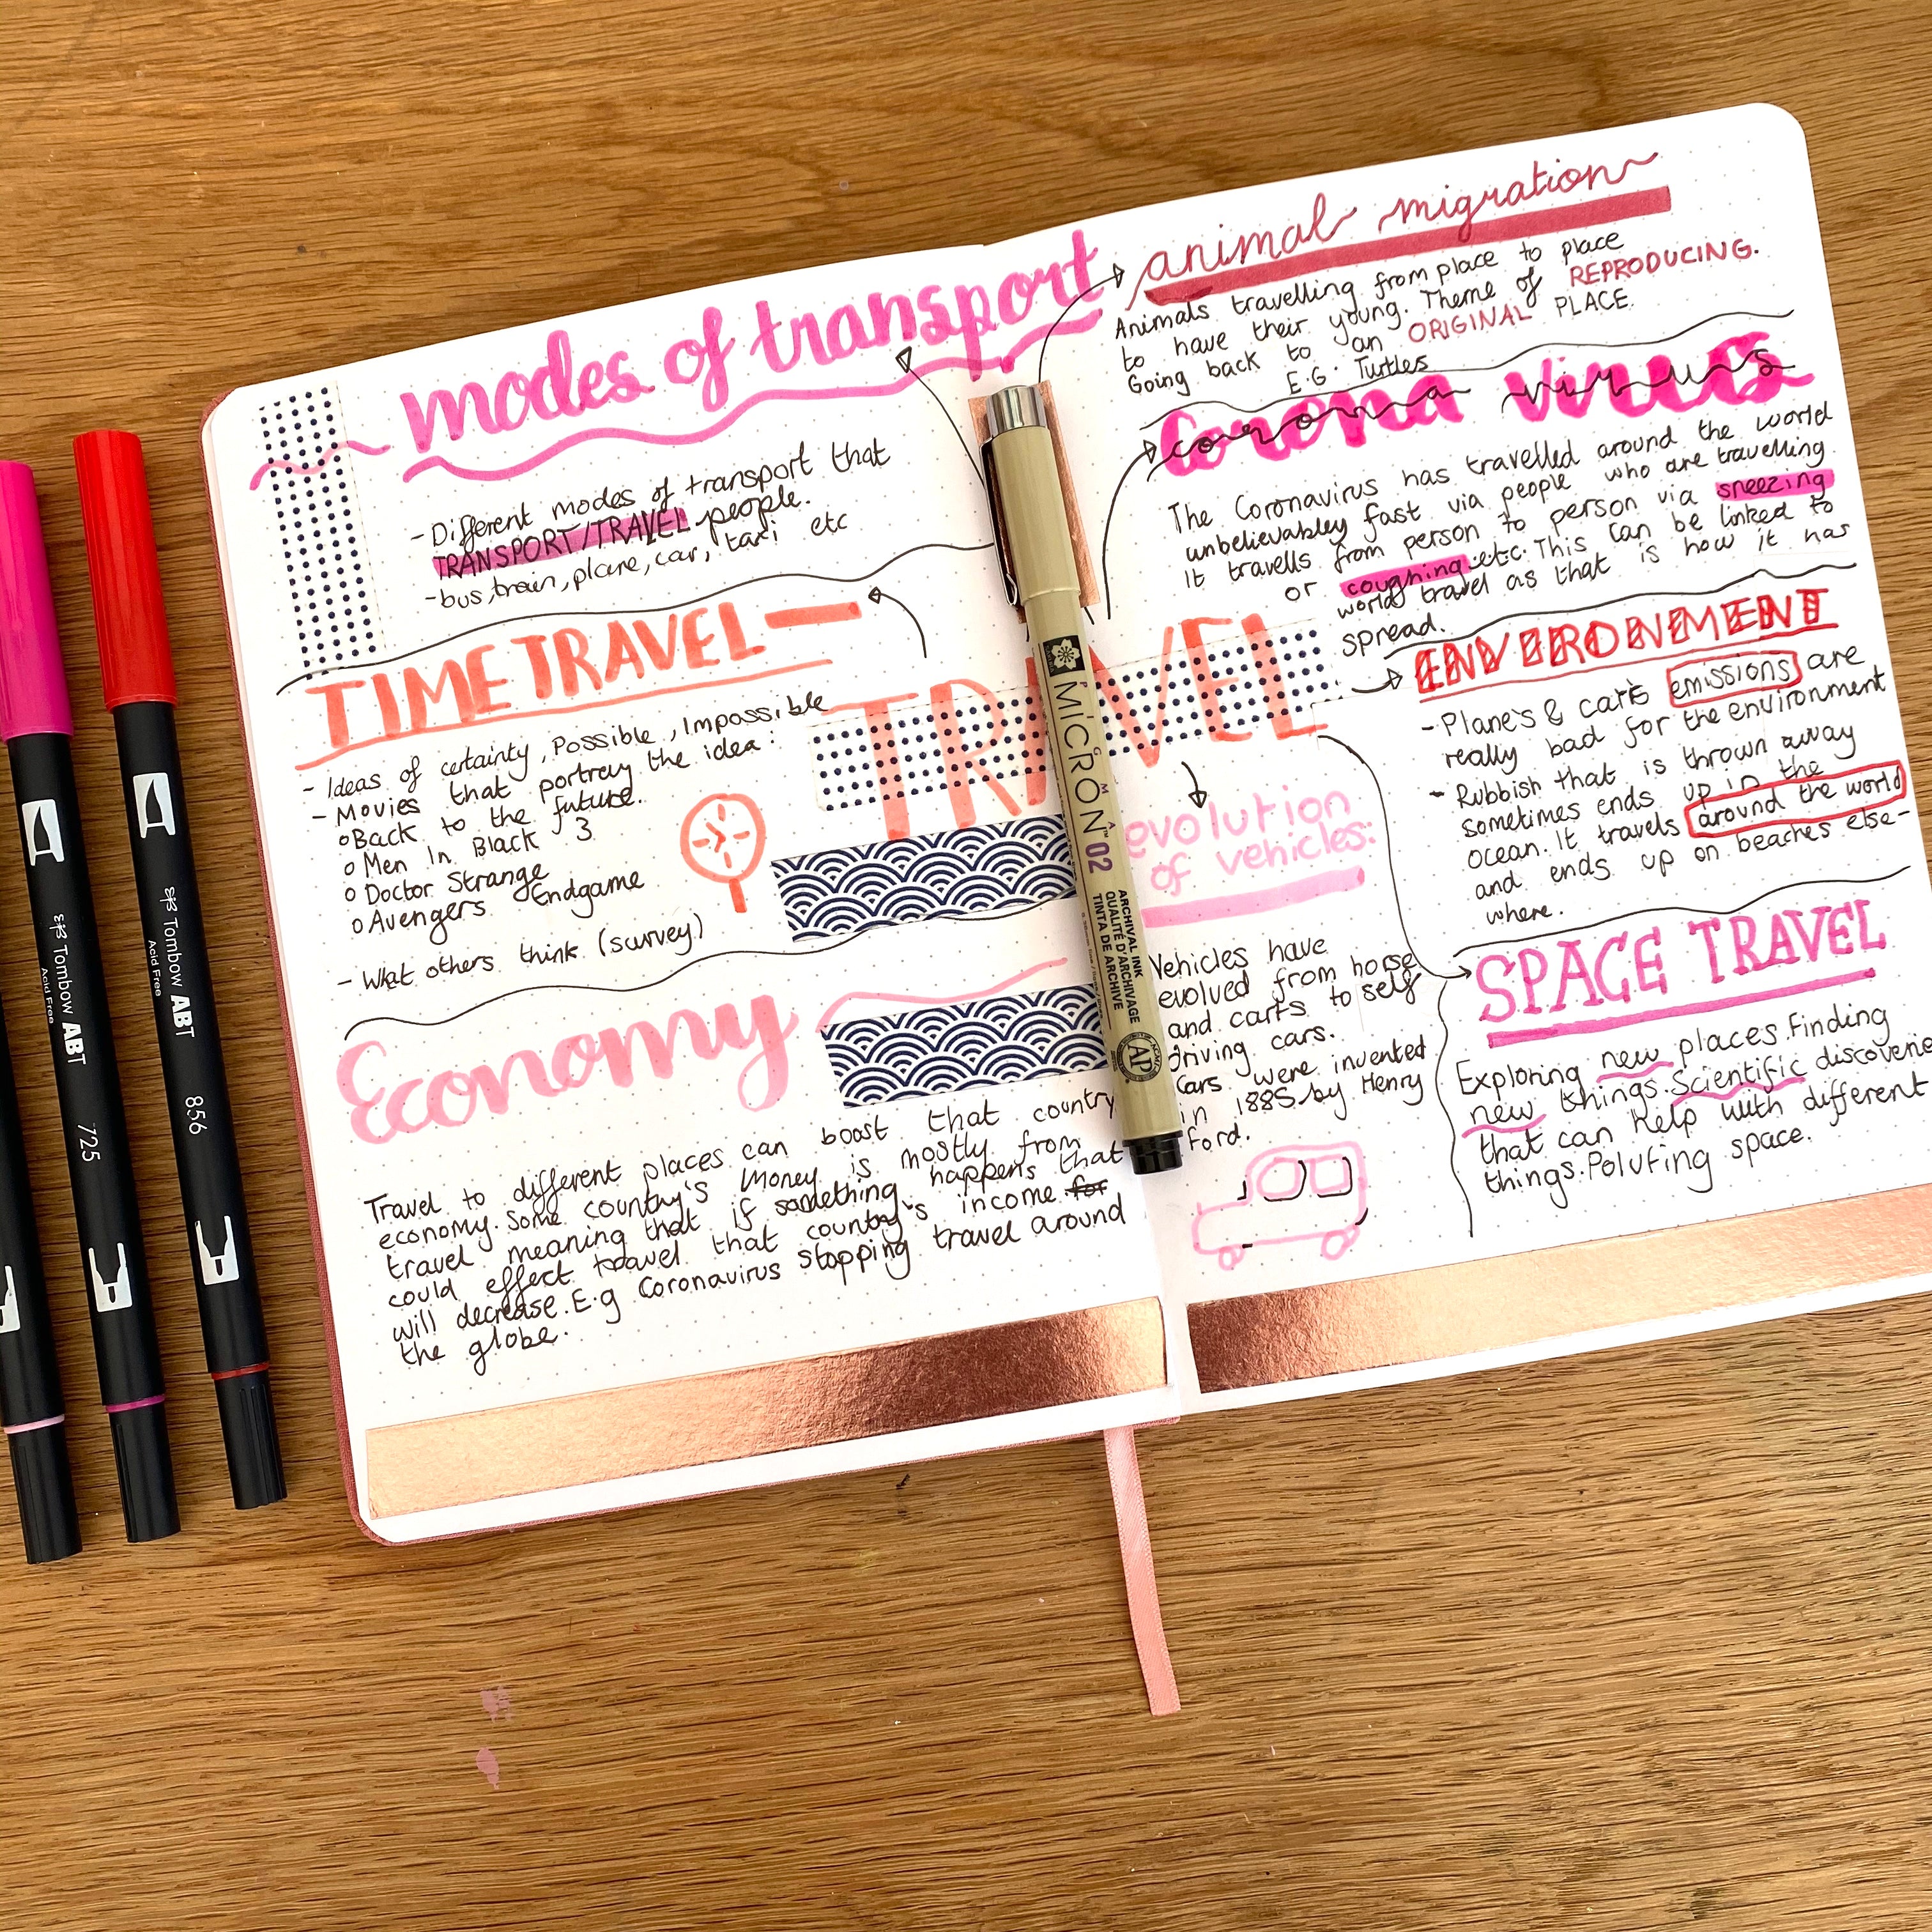 modes of transport
- Different modes of transport that
TRANSPORT/TRAVEL people.
- bus, train, plane, car, taxi etc
TIME TRAVEL
- Ideas of certainty, Possible, Impossible
- Movies that portray the idea:
o Back to the future.
o Men In Black 3
o Doctor Strange
o Avengers Endgame
- What others think (survey)
Economy
Travel to different places can boost that country
economy. Some country's money is mostly from
travel meaning that if something happens that
could effect travel that country's income for
will decrease. E.g Coronavirus stopping travel around
the globe.
TRAVEL
animal migration
Animals travelling from place to place
to have their young. Theme of REPRODUCING.
Going back to an ORIGINAL PLACE.
E.G. Turtles
corona virus
The Coronavirus has travelled around the world
unbelievabley fast via people who are travelling.
It travells from person to person via sneezing
or coughing etc. This can be linked to
world travel as that is how it has
spread.
evolution
of vehicles:
Vehicles have
evolved from horse
and carts to self
driving cars.
Cars were invented
in 1885 by Henry
Ford.
ENVIRONMENT
- Plane's & car's emissions are
really bad for the environment
- Rubbish that is thrown away
sometimes ends up in the
ocean. It travels around the world
and ends up on beaches else-
where.
SPACE TRAVEL
Exploring new places. Finding
new things. Scientific discoverie
that can help with different
things. Poluting space.
MICRON 02
ARCHIVAL INK
QUALITÉ D'ARCHIVAGE
TINTA DE ARCHIVE
AP
Tombow ABT
Acid Free
725
Tombow ABT
Acid Free
856